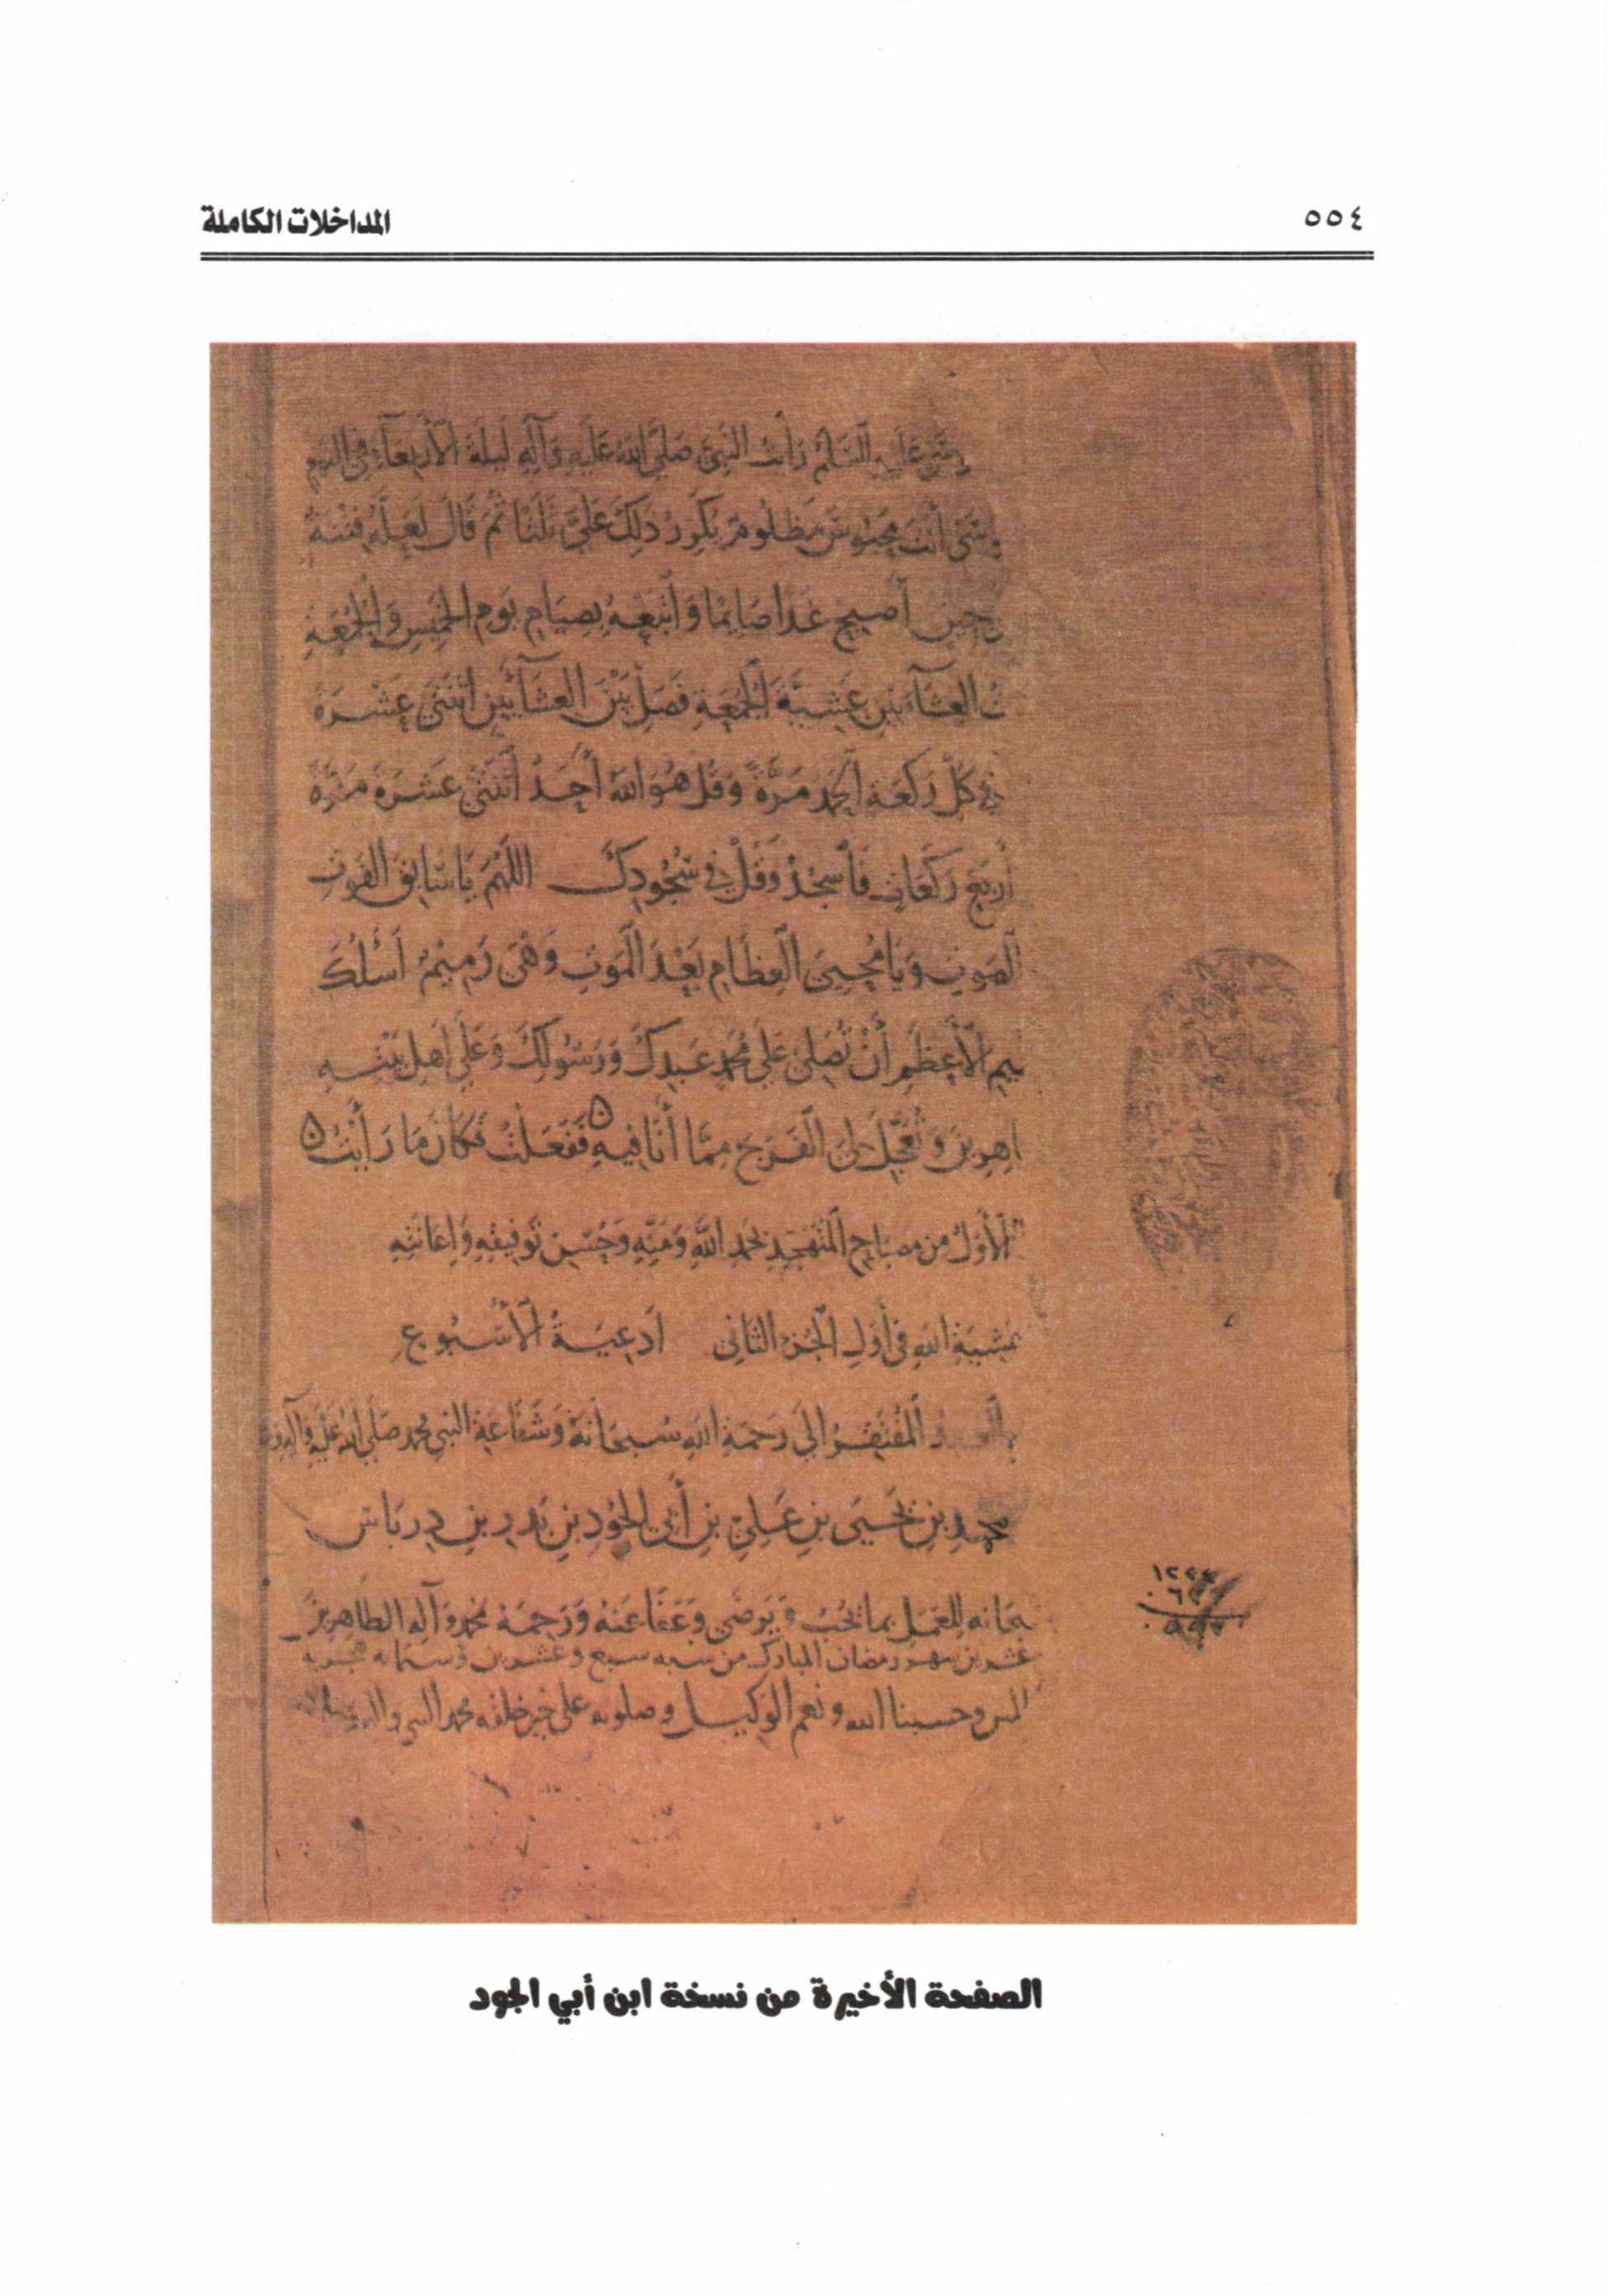 ٥٥٤
المداخلات الكاملة
عليه السلم رأيت النبي صلى الله عليه وآله ليلة الأربعاء في النوم
أنت محبوس مظلوم يكرر ذلك علي ثلثا ثم قال لعله فتنة
حين أصبح غدا صايما وأتبعه بصيام يوم الخميس والجمعة
العشآءين عشية الجمعة فصل بين العشآئين اثنتي عشرة
كل ركعة الحمد مرة وقل هو الله أحد اثنتي عشرة مرة
أربع ركعات فأسجد وقل في سجودك اللهم يا سابق الفوت
الصوت ويا محيي العظام بعد الموت وهي رميم أسئلك
الأعظم أن تصلي على محمد عبدك ورسولك وعلى أهل بيته
اهرين وتعجل لي الفرج مما أنا فيه ففعلت فكان ما رأيت
الأول من مصباح المتهجد بحمد الله ومنه وحسن توفيقه وإعانته
بمشية الله في أول الجزء الثاني أدعية الأسبوع
المفتقر إلى رحمة الله سبحانه وشفاعة النبي محمد صلى الله عليه وآله
محمد بن يحيى بن علي بن أبي الجود بن بدر بن درباس
للعمل بما يحب ويرضى وعفا عنه ورحمه بمحمد وآله الطاهرين
شهر رمضان المبارك من سنه سبع وعشرين وستمايه
وحسبنا الله ونعم الوكيل وصلوته على خير خلقه محمد النبي
الصفحة الأخيرة من نسخة ابن أبي الجود